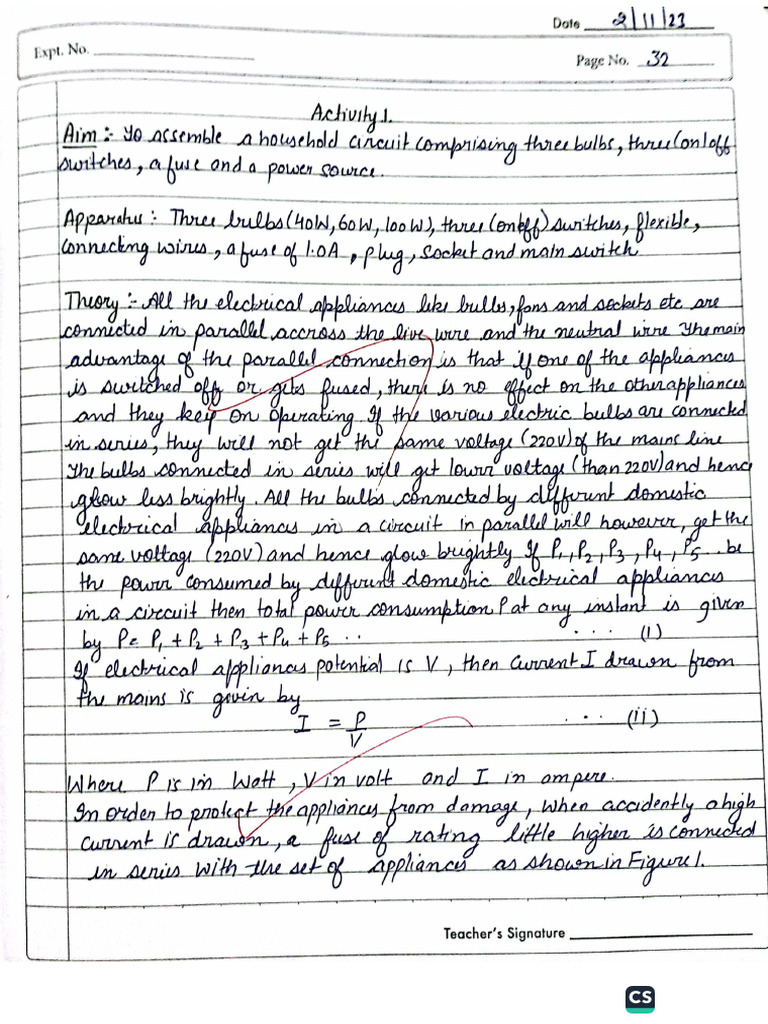 Date 2/11/23
Expt. No.
Page No. 32
Activity 1.
Aim :- To assemble a household circuit comprising three bulbs, three (on/off
switches, a fuse and a power source.
Apparatus :- Three bulbs (40W, 60W, 100W), three (on/off) switches, flexible,
connecting wires, a fuse of 1.0A, plug, socket and main switch
Theory :- All the electrical appliances like bulbs, fans and sockets etc are
connected in parallel accross the live wire and the neutral wire The main
advantage of the parallel connection is that if one of the appliances
is switched off or gets fused, there is no effect on the other appliances
and they keep on operating. If the various electric bulbs are connected
in series, they will not get the same voltage (220V) of the mains line
The bulbs connected in series will get lowrr voltage (than 220V) and hence
glow less brightly. All the bulbs connected by different domestic
electrical appliances in a circuit in parallel will however, get the
same voltage (220V) and hence glow brightly If P1, P2, P3, P4, P5 .. be
the powrr consumed by different domestic electrical appliances
in a circuit then total power consumption P at any instant is given
by P = P1 + P2 + P3 + P4 + P5 .. ... (i)
If electrical appliances potential is V, then current I drawn from
the mains is given by
I = P/V ... (ii)
Where P is in Watt, V in volt and I in ampere.
In order to protect the appliances from damage, when accidently a high
current is drawn, a fuse of rating little higher is connected
in series with the set of appliances as shown in Figure 1.
Teacher's Signature
CS